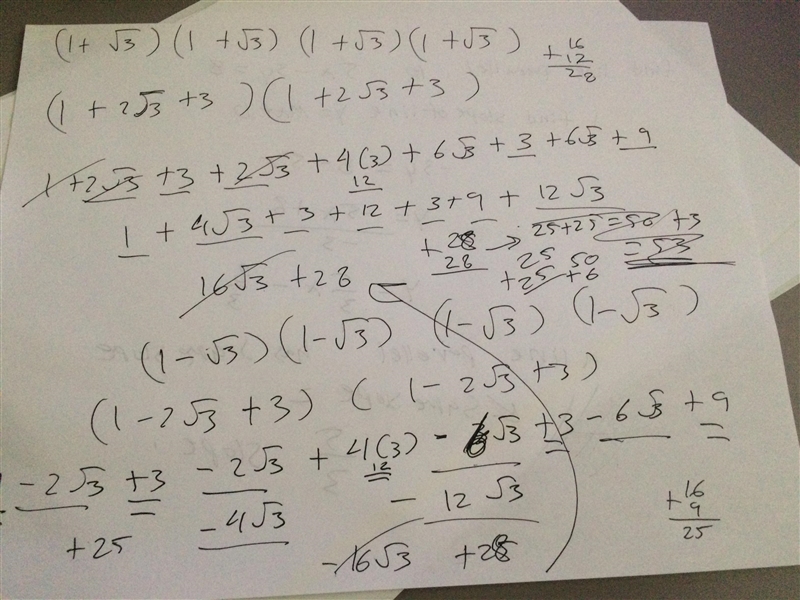 (1 + √3) (1 + √3) (1 + √3) (1 + √3)
+ 16
12
28
(1 + 2√3 + 3) (1 + 2√3 + 3)
1 + 2√3 + 3 + 2√3 + 4(3) + 6√3 + 3 + 6√3 + 9
12
1 + 4√3 + 3 + 12 + 3 + 9 + 12√3
25+25 = 50 + 3
= 53
+ 28
28
25 50
+25 +6
16√3 + 28
(1 - √3) (1 - √3) (1 - √3) (1 - √3)
(1 - 2√3 + 3) (1 - 2√3 + 3)
- 2√3 + 3 - 2√3 + 4(3) - 6√3 + 3 - 6√3 + 9
12
+ 25 - 4√3 - 12√3
- 16√3 + 28
+ 16
9
25